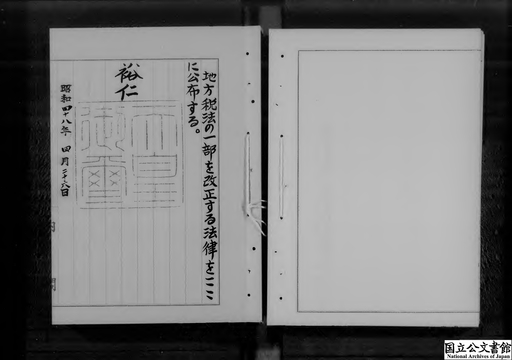 地方税法の一部を改正する法律をここ
に公布する。
裕仁
天皇
御璽
昭和四十八年四月二十六日
内閣
国立公文書館
National Archives of Japan